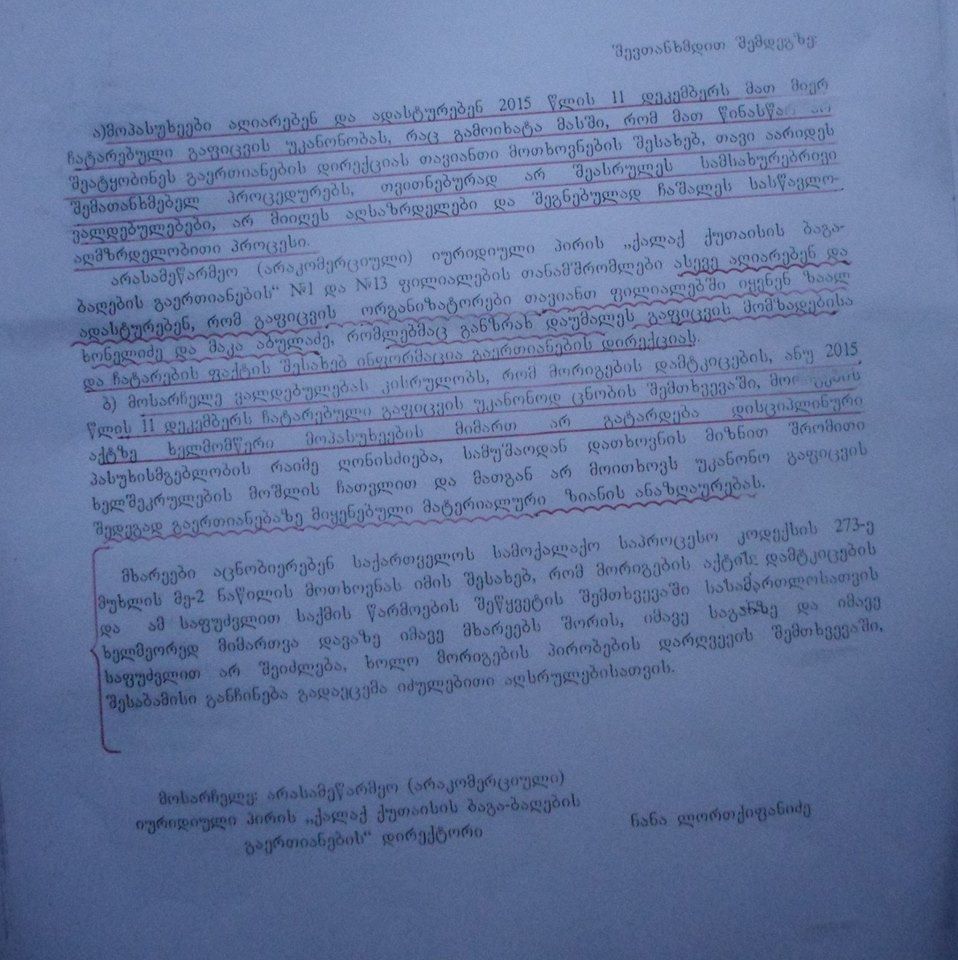 შევთანხმდით შემდეგზე:
ა)მოპასუხეები აღიარებენ და ადასტურებენ 2015 წლის 11 დეკემბერს მათ მიერ
ჩატარებული გაფიცვის უკანონობას, რაც გამოიხატა მასში, რომ მათ წინასწარ არ
შეატყობინეს გაერთიანების დირექციას თავიანთი მოთხოვნების შესახებ, თავი აარიდეს
შემათანხმებელ პროცედურებს, თვითნებურად არ შეასრულეს სამსახურებრივი
ვალდებულებები, არ მიიღეს აღსაზრდელები და შეგნებულად ჩაშალეს სასწავლო-
აღმზრდელობითი პროცესი.
არასამეწარმეო (არაკომერციული) იურიდიული პირის „ქალაქ ქუთაისის ბაგა-
ბაღების გაერთიანების“ №1 და №13 ფილიალების თანამშრომლები ასევე აღიარებენ და
ადასტურებენ, რომ გაფიცვის ორგანიზატორები თავიანთ ფილიალებში იყვნენ ზაალ
ხონელიძე და მაკა აბულაძე, რომლებმაც განზრახ დაუმალეს გაფიცვის მომზადებისა
და ჩატარების ფაქტის შესახებ ინფორმაცია გაერთიანების დირექციას.
ბ) მოსარჩელე ვალდებულებას კისრულობს, რომ მორიგების დამტკიცების, ანუ 2015
წლის 11 დეკემბერს ჩატარებული გაფიცვის უკანონოდ ცნობის შემთხვევაში, მორიგების
აქტზე ხელმომწერი მოპასუხეების მიმართ არ გატარდება დისციპლინური
პასუხისმგებლობის რაიმე ღონისძიება, სამუშაოდან დათხოვნის მიზნით შრომითი
ხელშეკრულების მოშლის ჩათვლით და მათგან არ მოითხოვს უკანონო გაფიცვის
შედეგად გაერთიანებაზე მიყენებული მატერიალური ზიანის ანაზღაურებას.
მხარეები აცნობიერებენ საქართველოს სამოქალაქო საპროცესო კოდექსის 273-ე
მუხლის მე-2 ნაწილის მოთხოვნას იმის შესახებ, რომ მორიგების აქტის დამტკიცების
და ამ საფუძვლით საქმის წარმოების შეწყვეტის შემთხვევაში სასამართლოსათვის
ხელმეორედ მიმართვა დავაზე იმავე მხარეებს შორის, იმავე საგანზე და იმავე
საფუძვლით არ შეიძლება, ხოლო მორიგების პირობების დარღვევის შემთხვევაში,
შესაბამისი განჩინება გადაეცემა იძულებითი აღსრულებისათვის.
მოსარჩელე: არასამეწარმეო (არაკომერციული)
იურიდიული პირის „ქალაქ ქუთაისის ბაგა-ბაღების
გაერთიანების“ დირექტორი ნანა ლორთქიფანიძე